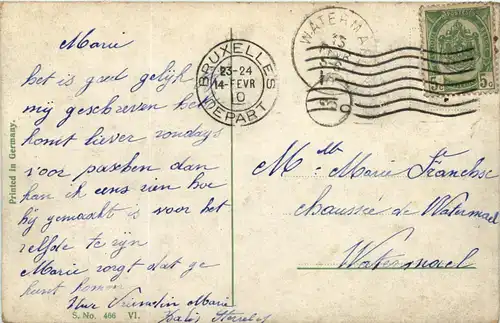 Marie
het is goed gelijk
mij geschreven het
komt liever zondags
voor paschen dan
kan ik eens zien hoe
hij gemaakt is voor het
zelfde te zijn
Marie zorgt dat ge
kunt komen
Uwe Vriendin Marie
Printed in Germany.
S. No. 466 VI.
BRUXELLES
23-24
14-FEVR
10
DEPART
WATERMA
13
5c 5c
Mlle Marie
chaussée de Watermael
Watermael